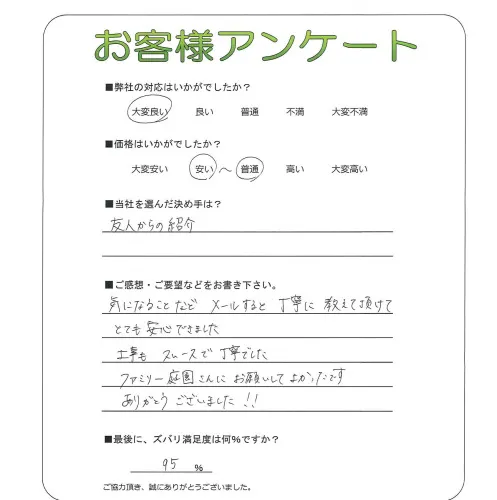 お客様アンケート
■弊社の対応はいかがでしたか？
大変良い 良い 普通 不満 大変不満
■価格はいかがでしたか？
大変安い 安い ～ 普通 高い 大変高い
■当社を選んだ決め手は？
友人からの紹介
■ご感想・ご要望などをお書き下さい。
気になることなど メールすると 丁寧に 教えて頂けて
とても 安心できました
工事も スムースで 丁寧でした
ファミリー庭園さんに お願いして よかったです
ありがとう ございました！！
■最後に、ズバリ満足度は何％ですか？
95 ％
ご協力頂き、誠にありがとうございました。